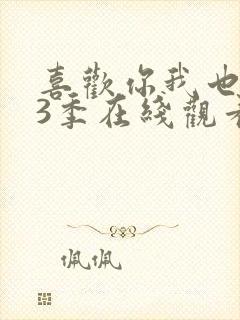 喜歡你我也
3季在綫觀看
佩佩